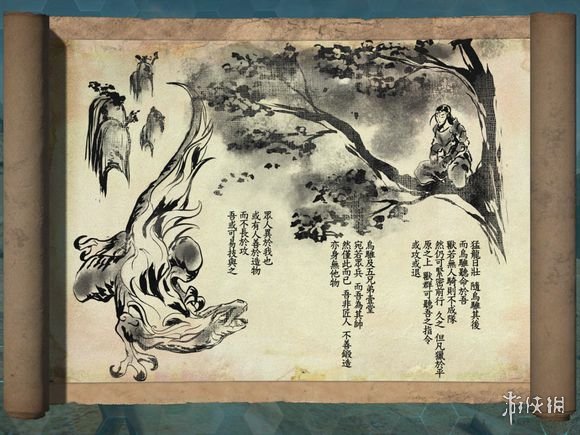 猛龍日壯　隨烏騅其後
而烏騅聽命於吾
獸若無人騎則不成隊
然仍可緊密前行　久之　但凡獵於平
原之上　獸群可聽吾之指令
或攻或退
烏騅及五兄弟壹堂
宛若眾兵　而吾為其帥
然僅此而已　吾非匠人　不善鍛造
亦身無他物
眾人異於我也
或有人善於造物
而不長於攻
吾或可易技與之
游侠網